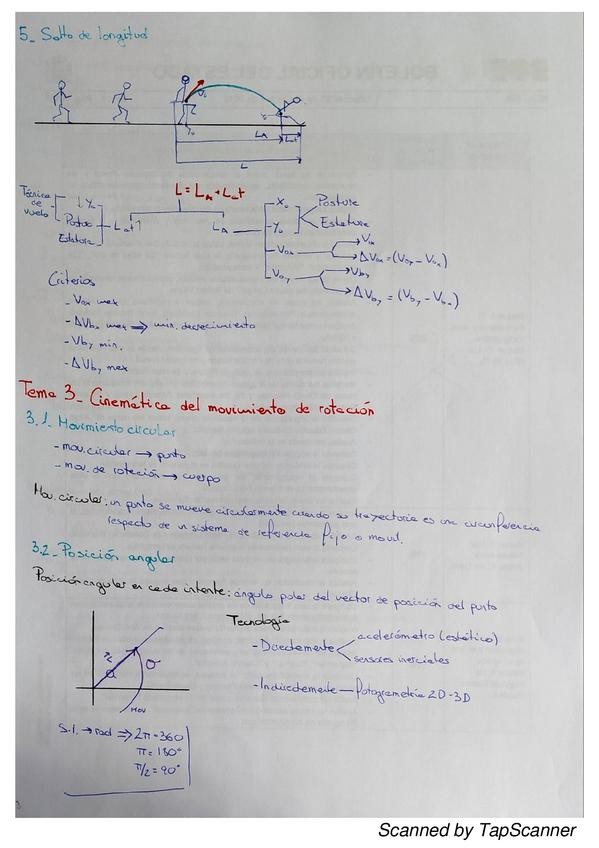 5- Salto de longitud
L
L = L + L t
Técnica de vuelo
↓ Y₀
Postura
Estatura
X₀
Y₀
Postura
Estatura
V₀ₓ
V₀y
Criterios
- V₀ₓ max
- ΔVbₓ max ⇒ min. decrecimiento
- Vby min.
- ΔVby max
Tema 3- Cinemática del movimiento de rotación
3.1- Movimiento circular
- mov. circular → punto
- mov. de rotación → cuerpo
Mov. circular: un punto se mueve circularmente cuando su trayectoria es una circunferencia
respecto de un sistema de referencia fijo o movil.
3.2- Posición angular
Posición angular en cada intente: ángulo polar del vector de posición del punto
Tecnología
- Directamente
acelerómetro (estático)
sensores inerciales
- Indirectamente — fotogrametría 2D-3D
MOV
S.I. → rad ⇒ 2π = 360
π = 180°
π/2 = 90°
Scanned by TapScanner